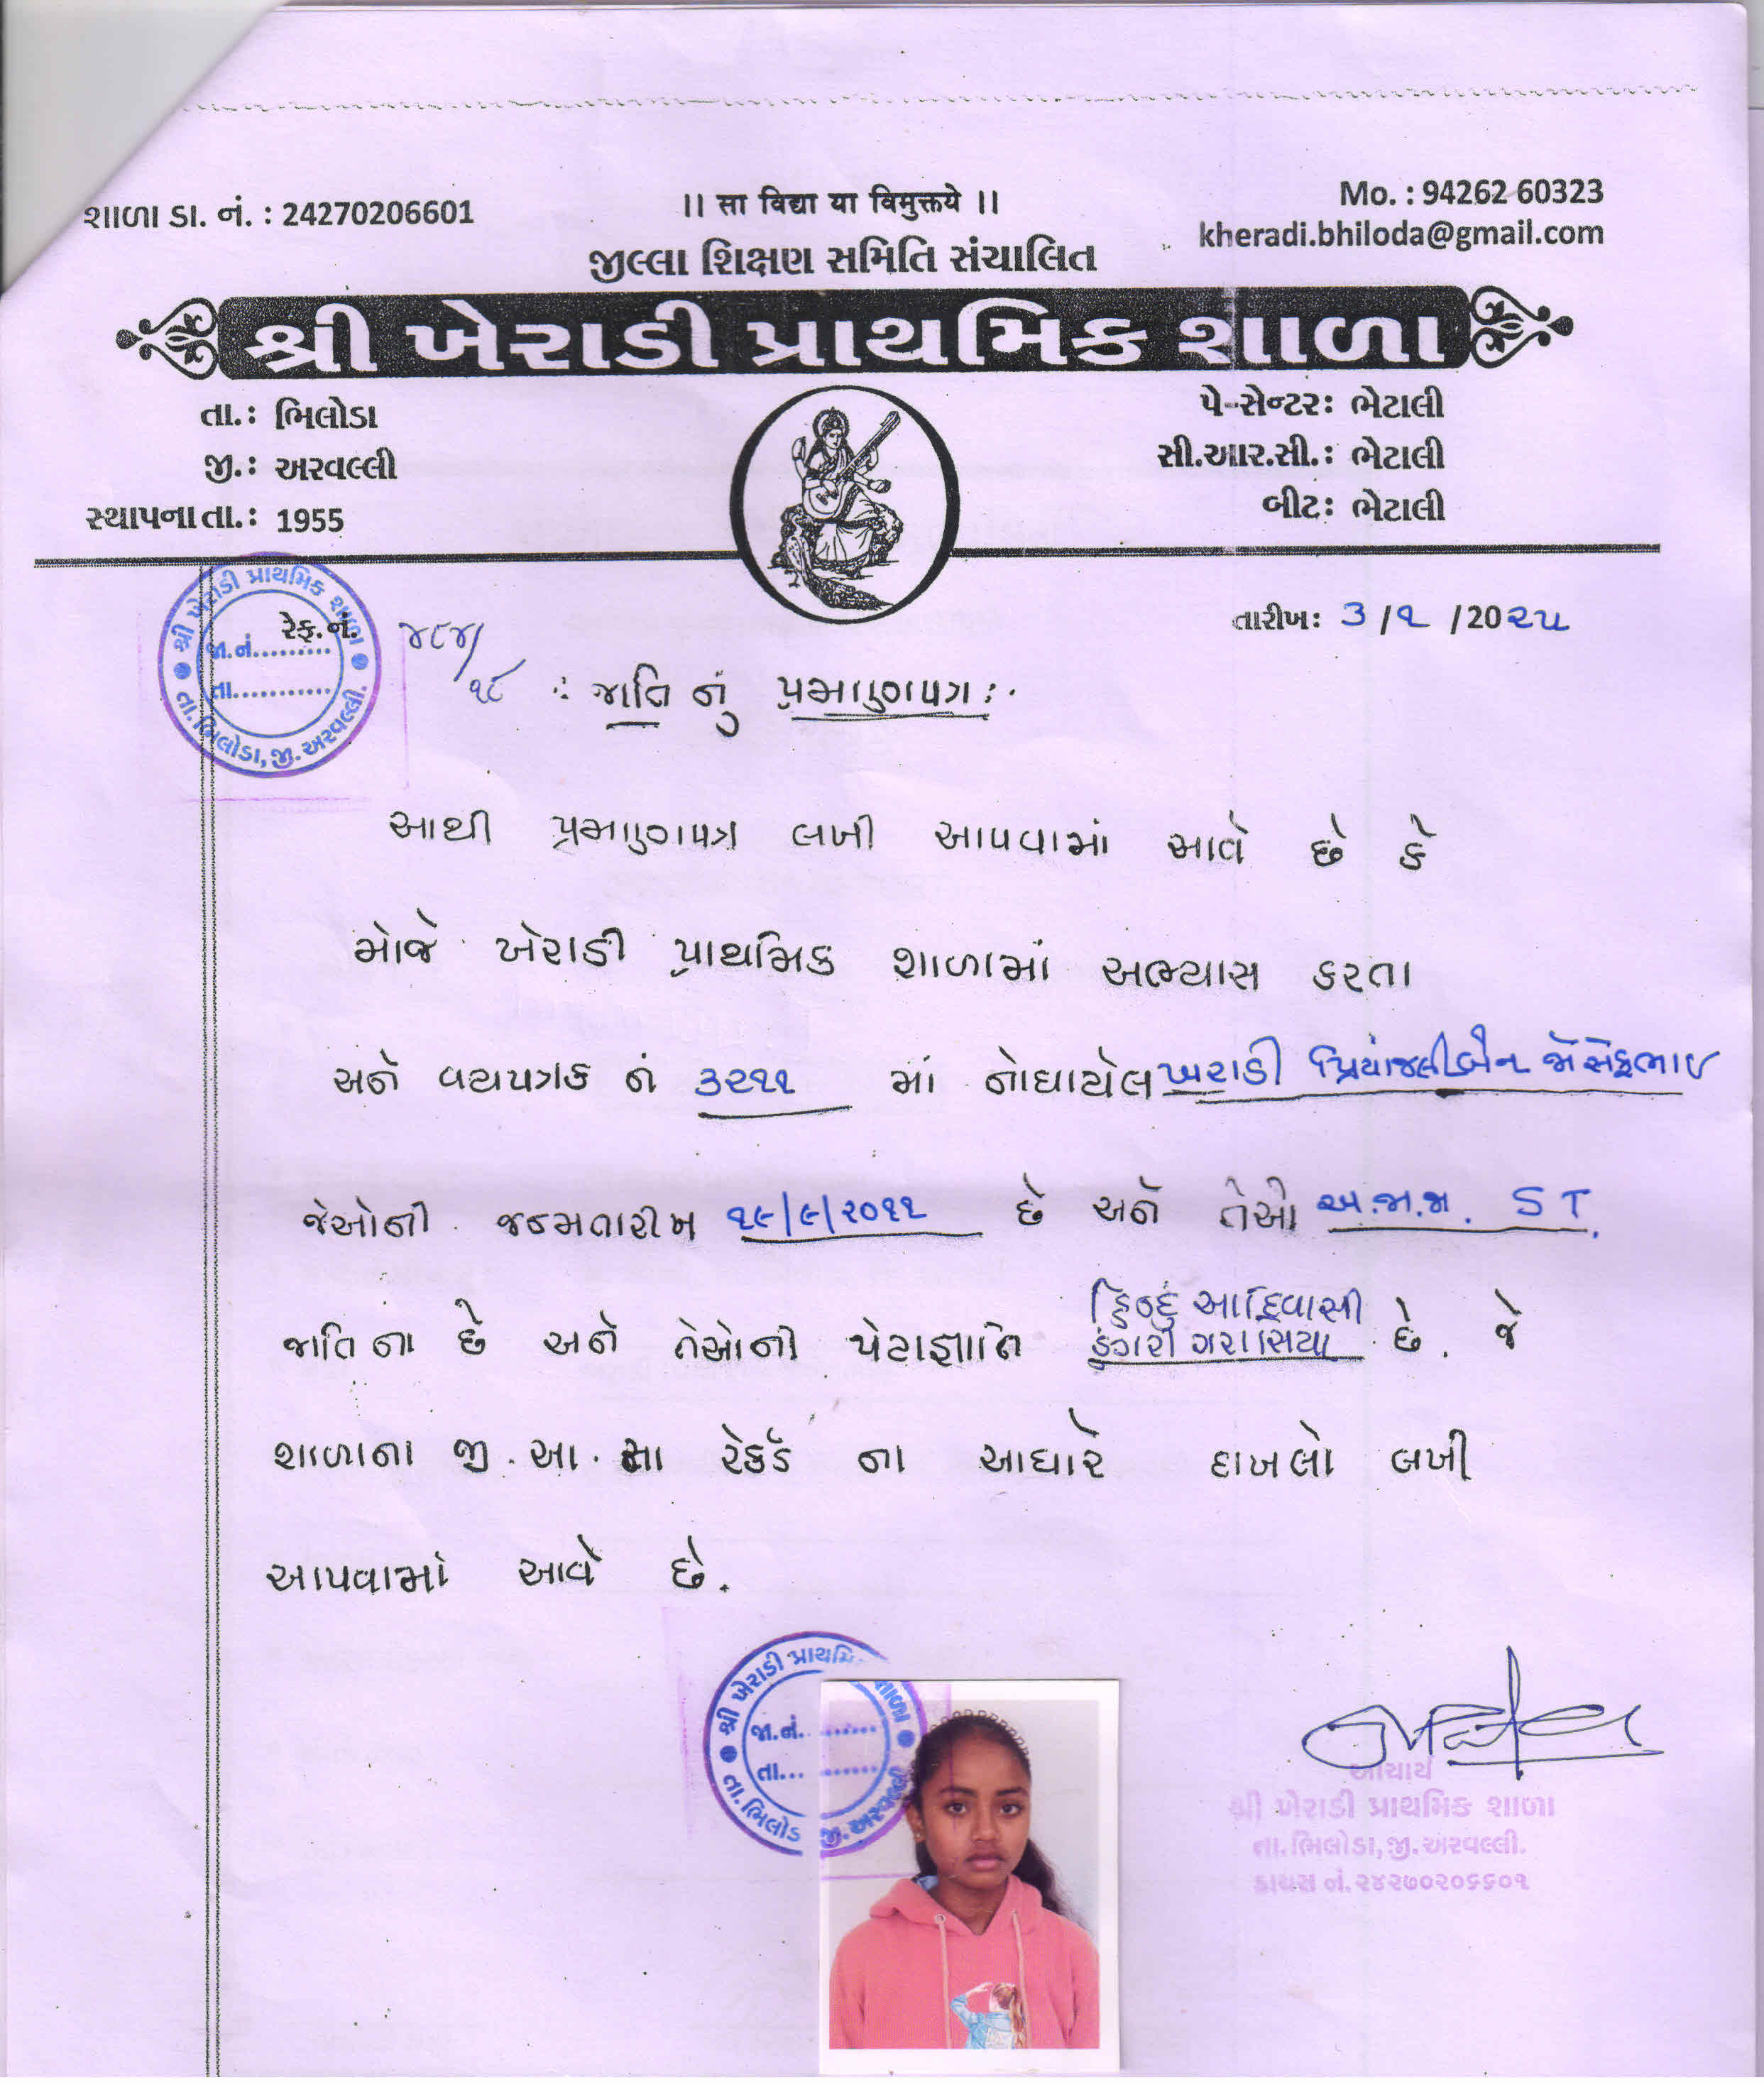 શાળા ડા. નં. : 24270206601
|| सा विद्या या विमुक्तये ||
Mo. : 94262 60323
kheradi.bhiloda@gmail.com
જીલ્લા શિક્ષણ સમિતિ સંચાલિત
શ્રી ખેરાડી પ્રાથમિક શાળા
તા.: ભિલોડા
જી.: અરવલ્લી
સ્થાપના તા.: 1955
પે-સેન્ટર: ભેટાલી
સી.આર.સી.: ભેટાલી
બીટ: ભેટાલી
શ્રી ખેરાડી પ્રાથમિક શાળા
જા.નં.........
તા...........
તા.ભિલોડા,જી.અરવલ્લી.
રેફ.નં. ૪૮૪/૧૮
તારીખ: ૩/૧/20૨૫
:જાતિ નું પ્રમાણપત્ર:
આથી પ્રમાણપત્ર લખી આપવામાં આવે છે કે
મોજે ખેરાડી પ્રાથમિક શાળામાં અભ્યાસ કરતા
અને વયપત્રક નં ૩૨૧૧ માં નોધાયેલ ખરાડી પ્રિયાંજલીબેન જોસેફભાઇ
જેઓની જન્મતારીખ ૧૯/૯/૨૦૧૧ છે અને તેઓ અ.જ.જા. ST.
જાતિ ના છે અને તેઓની પેટાજ્ઞાતિ હિન્દુ આદિવાસી ડુંગરી ગરાસિયા છે. જે
શાળાના જી.આ. ના રેકર્ડ ના આધારે દાખલો લખી
આપવામાં આવે છે.
શ્રી ખેરાડી પ્રાથમિ શાળા
જા.નં. .......
તા... .......
તા.ભિલોડ જી.અરવલ્લી
આચાર્ય
શ્રી ખેરાડી પ્રાથમિક શાળા
તા.ભિલોડા,જી.અરવલ્લી.
ડાયસ નં.૨૪૨૭૦૨૦૬૬૦૧